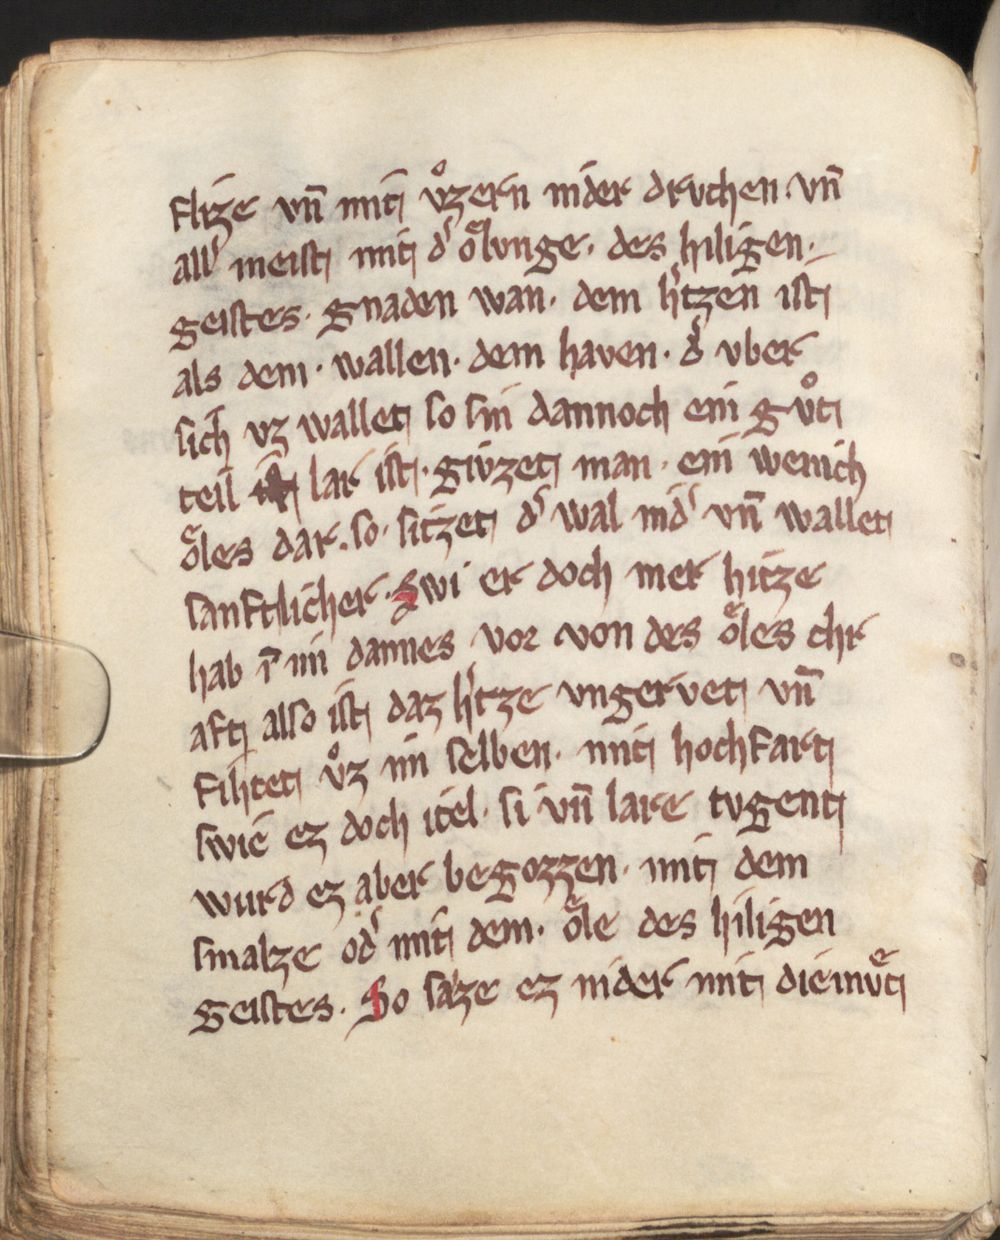 flize vn̄ mit vͦzern nider drvchen · vn̄
all᷑ meist mit d᷑ oͤlvnge · des hiligen ·
geistes · gnaden wan · dem h᷑tzen ist
als dem · wallen · dem haven · d᷑ vber
sich vz wallet so sin dannoch ein gvͦt
teil lar ist · givzet man · ein wenich
oͤles dar · so · sitzet d᷑ wal nid᷑ vn̄ wallet
sanftlicher · Swi er doch mer hitze
hab ī im dannes vor von des oͤles chr
aft also ist daz h᷑tze vngervet vn̄
fihtet vͦz im selben · mit hochfart
swie ez doch itel · si vn̄ lare tvgent
wurd ez aber begozzen · mit dem
smalze od᷑ mit dem · oͤle des hiligen
geistes · So saze ez nider mit diemvͤt